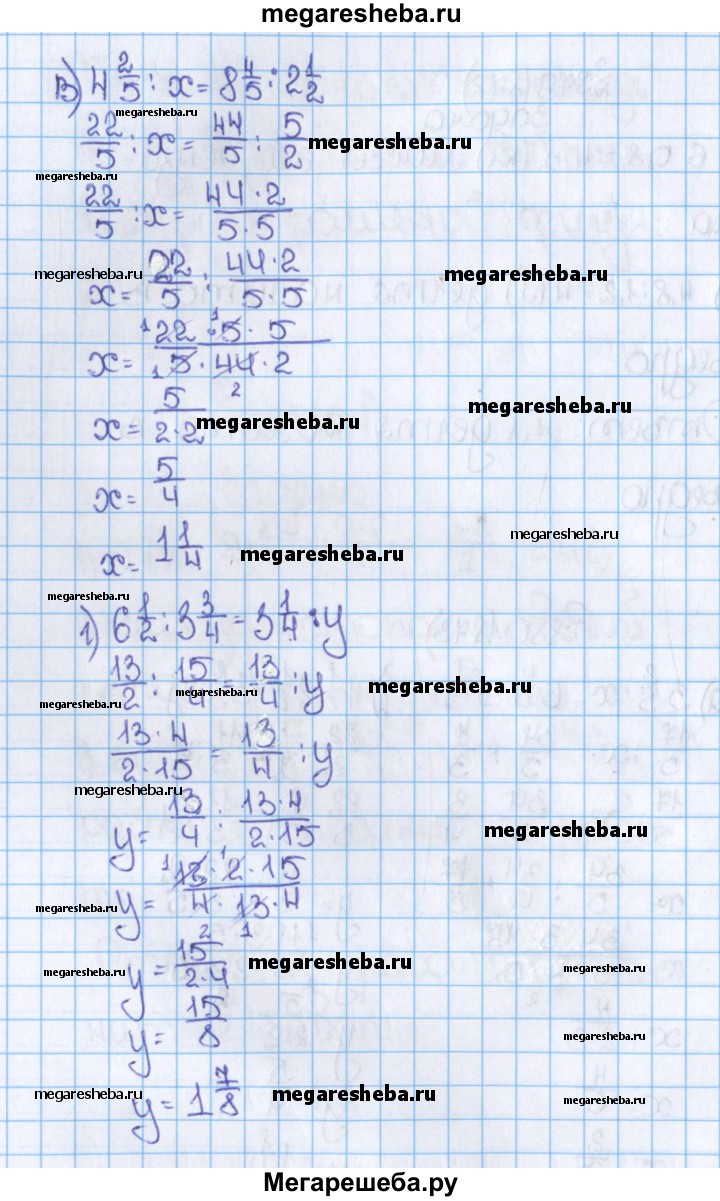 megaresheba.ru
В) 4 2/5 : x = 8 4/5 : 2 1/2
megaresheba.ru
22/5 : x = 44/5 : 5/2 megaresheba.ru
megaresheba.ru
22/5 : x = 44·2/5·5
megaresheba.ru x = 22/5 : 44·2/5·5 megaresheba.ru
x = 1 22 · 1 5 · 5/1 5 · 44 · 2
2
x = 5/2·2 megaresheba.ru megaresheba.ru
x = 5/4
x = 1 1/4 megaresheba.ru megaresheba.ru
megaresheba.ru
1) 6 1/2 : 3 3/4 = 3 1/4 : y
13/2 : 15/4 = 13/4 : y megaresheba.ru megaresheba.ru
megaresheba.ru
13·4/2·15 = 13/4 : y
megaresheba.ru
y = 13/4 : 13·4/2·15 megaresheba.ru
y = 1 13 · 1 2 · 15/4 · 13 · 4
megaresheba.ru megaresheba.ru
2 1
megaresheba.ru y = 15/2·4 megaresheba.ru megaresheba.ru
y = 15/8 megaresheba.ru
megaresheba.ru y = 1 7/8 megaresheba.ru megaresheba.ru
Мегарешеба.ру